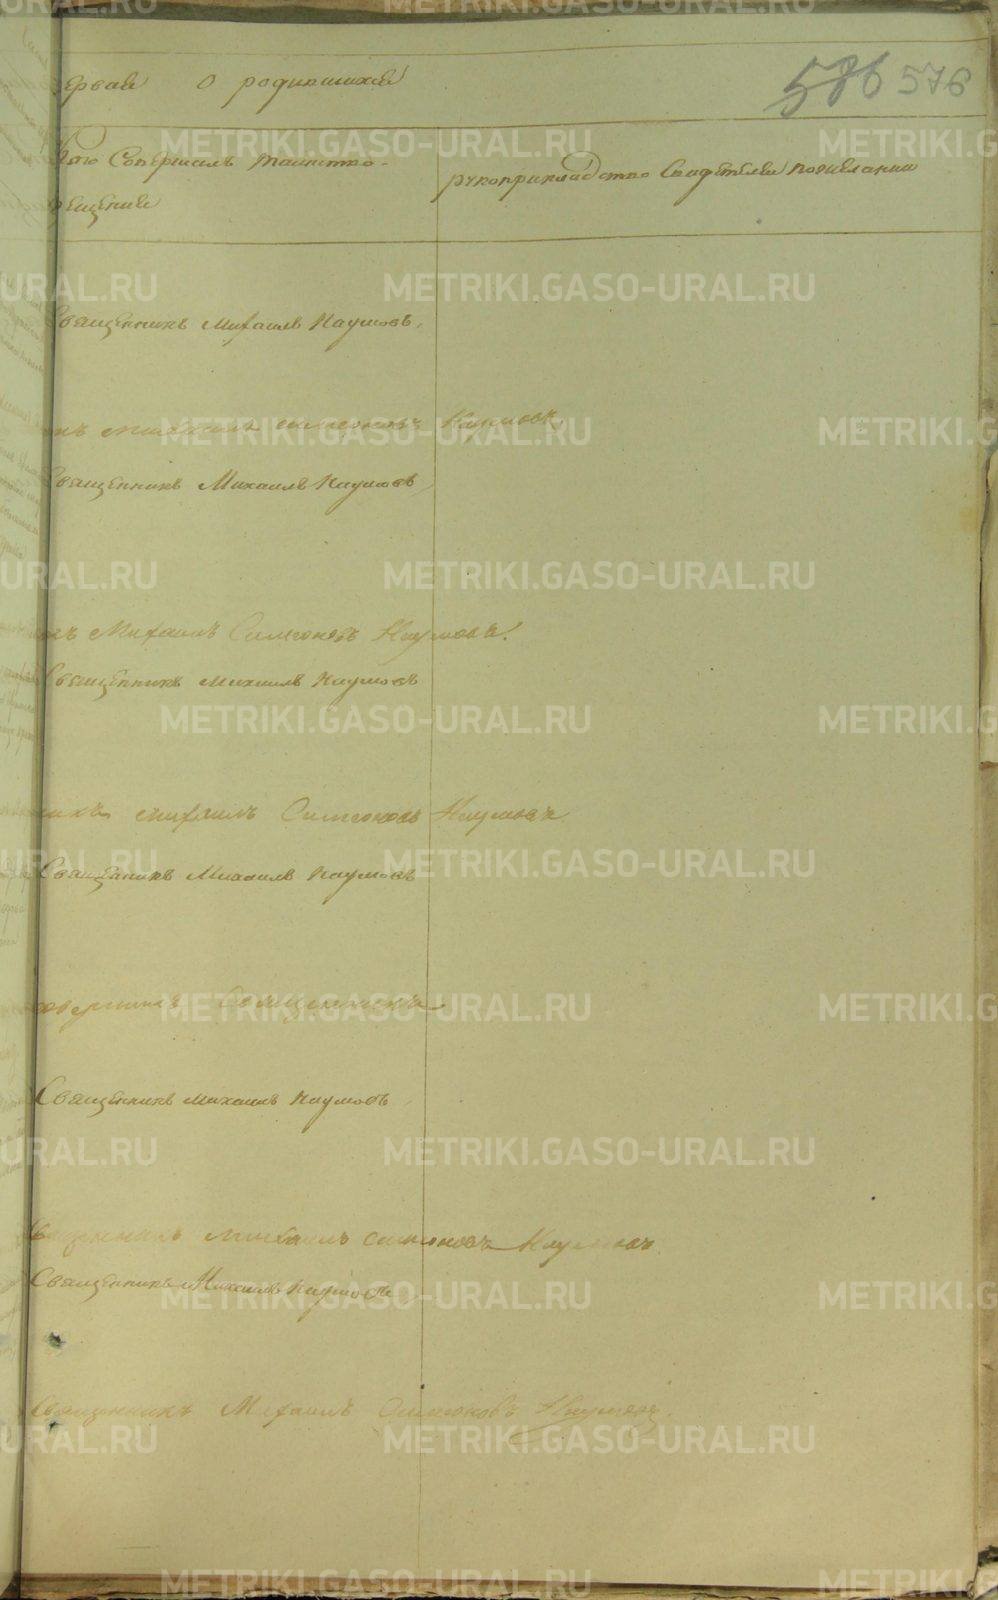 ервая О родившихся
586 576
Кто Совершалъ таинство
рещения
рукоприкладство Свидетелей по желанию
Священникъ Михаилъ Наумовъ,
къ Михаилъ Симеоновъ Наумовъ.
Священникъ Михаилъ Наумовъ,
къ Михаилъ Симеоновъ Наумовъ.
Священникъ Михаилъ Наумовъ
икъ Михаилъ Симеоновъ Наумовъ.
Священникъ Михаилъ Наумовъ
Священникъ
Священникъ Михаилъ Наумовъ,
Священникъ Михаилъ Симеоновъ Наумовъ.
Священникъ Михаилъ Наумовъ
Священникъ Михаилъ Симеоновъ Наумовъ.
METRIKI.GASO-URAL.RU